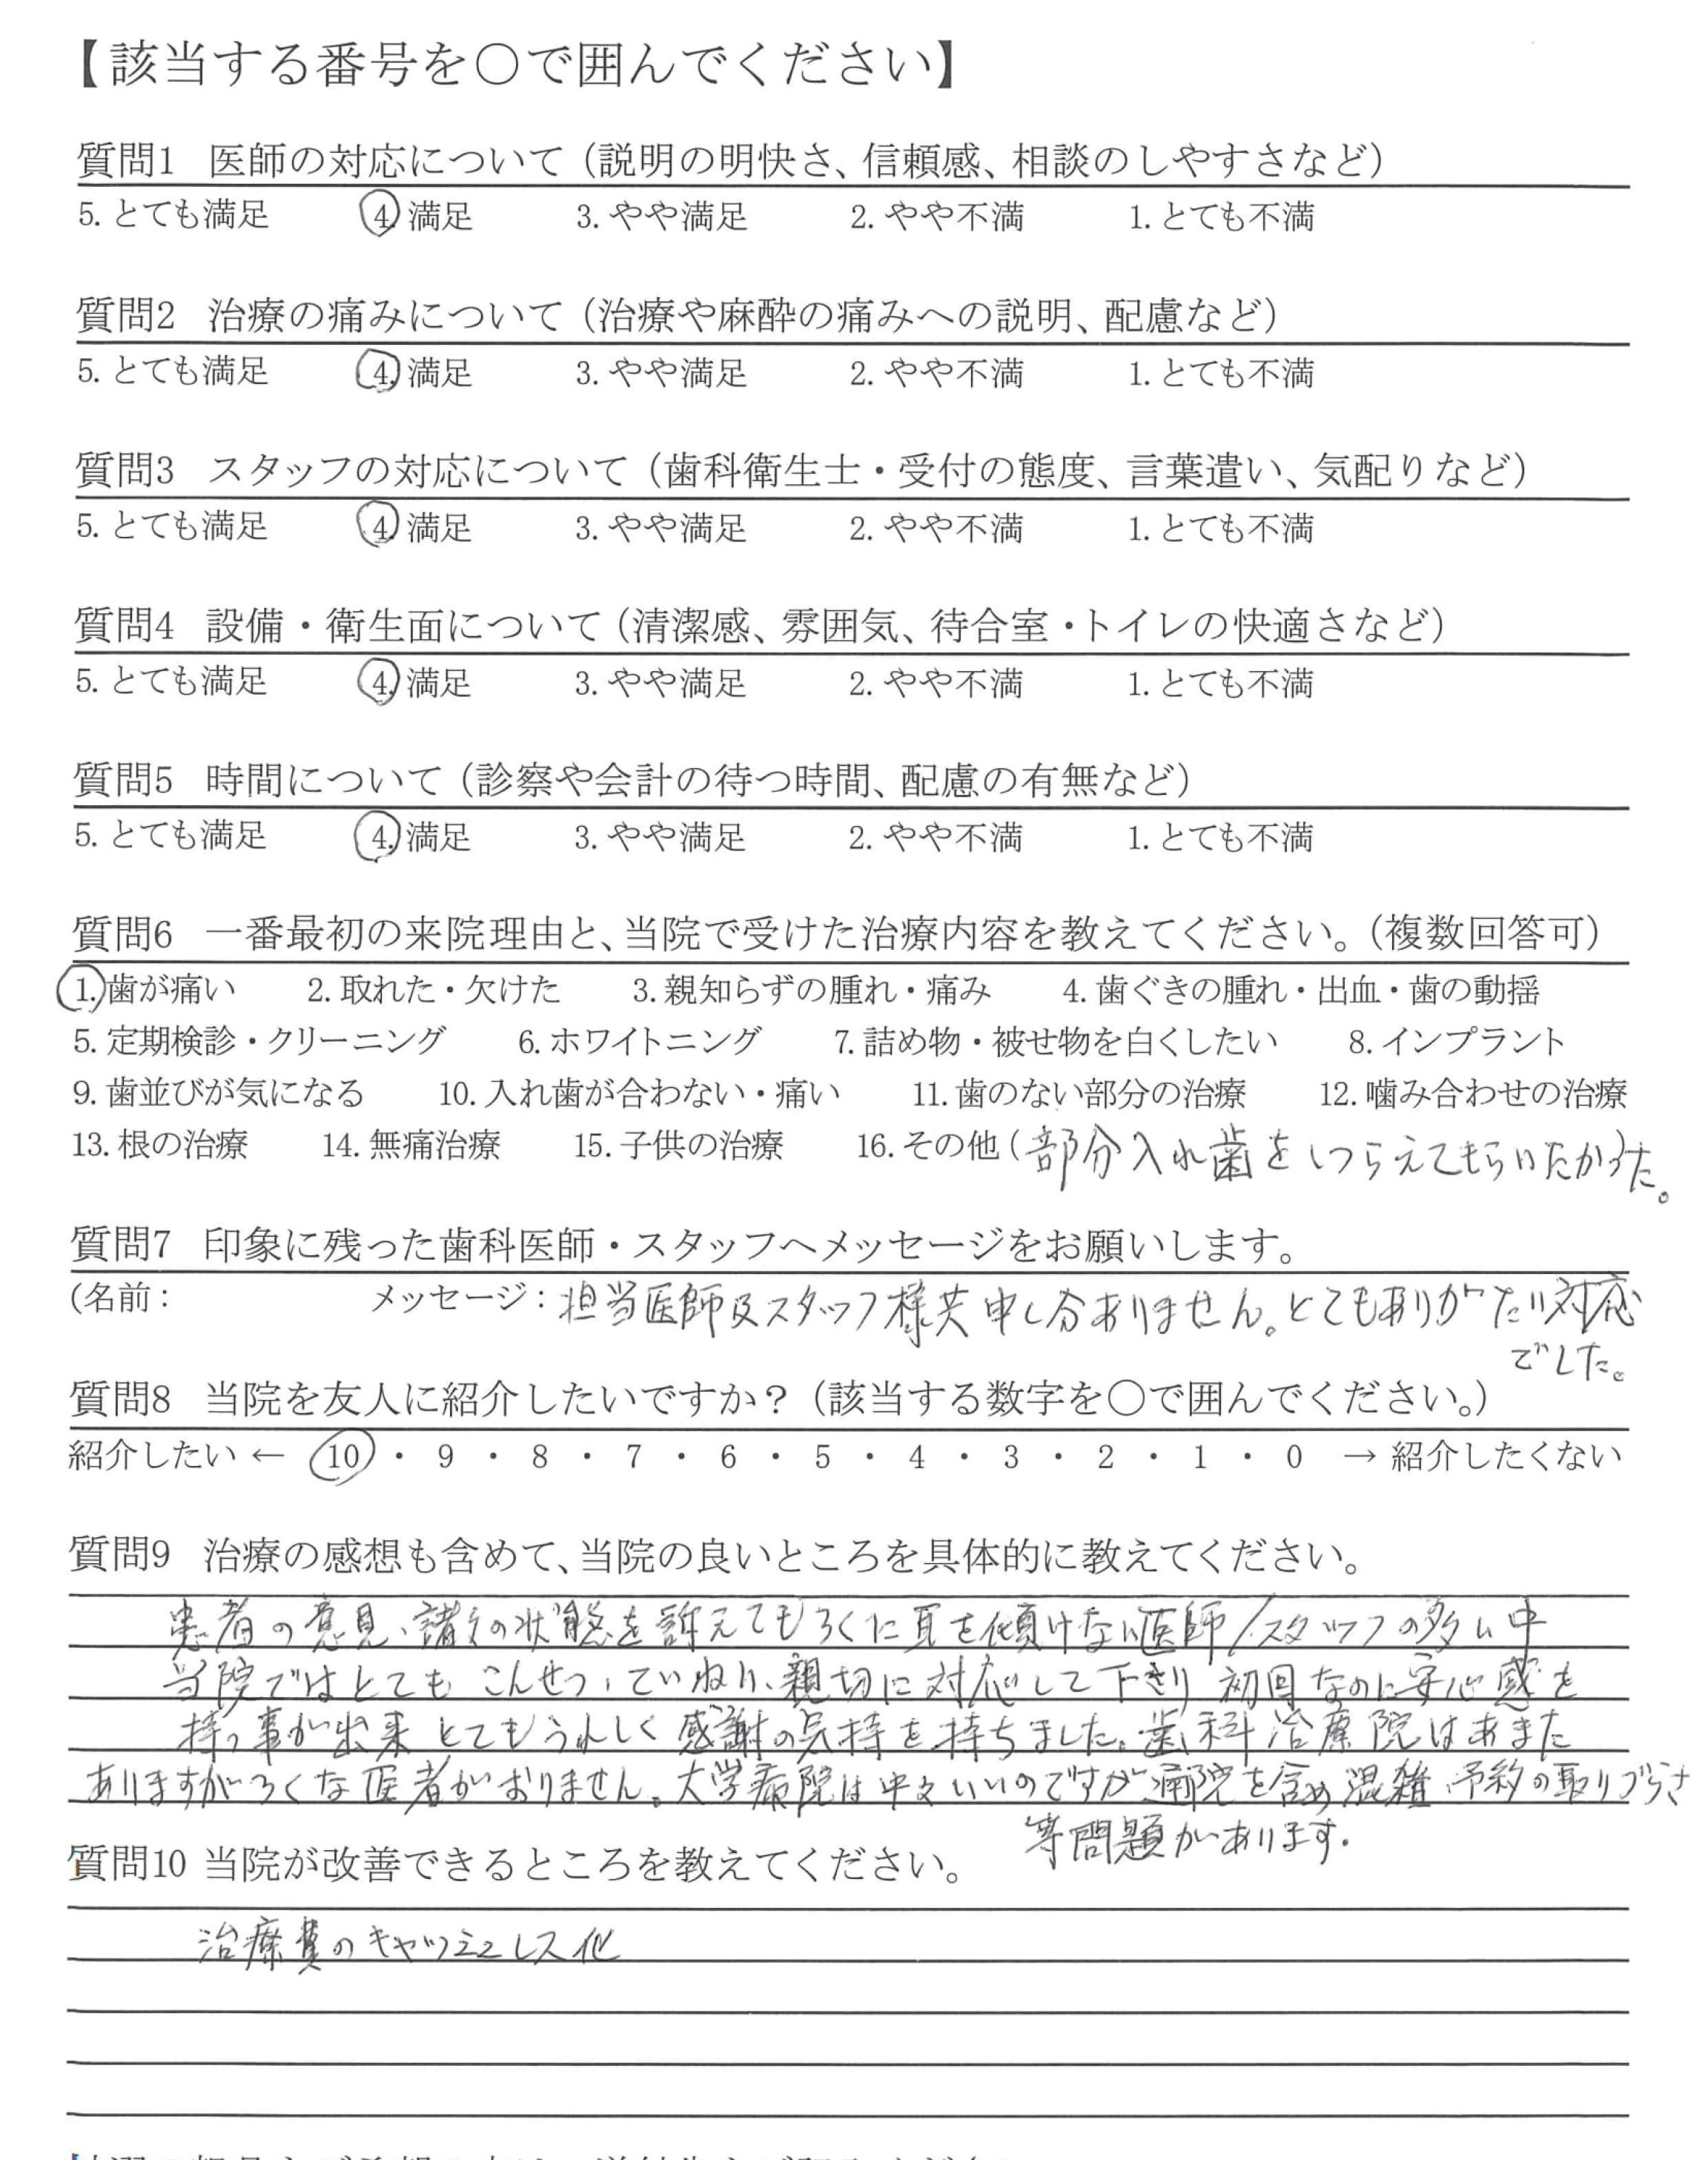 【該当する番号を○で囲んでください】
質問1 医師の対応について（説明の明快さ、信頼感、相談のしやすさなど）
5. とても満足 4. 満足 3. やや満足 2. やや不満 1. とても不満
質問2 治療の痛みについて（治療や麻酔の痛みへの説明、配慮など）
5. とても満足 4. 満足 3. やや満足 2. やや不満 1. とても不満
質問3 スタッフの対応について（歯科衛生士・受付の態度、言葉遣い、気配りなど）
5. とても満足 4. 満足 3. やや満足 2. やや不満 1. とても不満
質問4 設備・衛生面について（清潔感、雰囲気、待合室・トイレの快適さなど）
5. とても満足 4. 満足 3. やや満足 2. やや不満 1. とても不満
質問5 時間について（診察や会計の待つ時間、配慮の有無など）
5. とても満足 4. 満足 3. やや満足 2. やや不満 1. とても不満
質問6 一番最初の来院理由と、当院で受けた治療内容を教えてください。（複数回答可）
1. 歯が痛い 2. 取れた・欠けた 3. 親知らずの腫れ・痛み 4. 歯ぐきの腫れ・出血・歯の動揺
5. 定期検診・クリーニング 6. ホワイトニング 7. 詰め物・被せ物を白くしたい 8. インプラント
9. 歯並びが気になる 10. 入れ歯が合わない・痛い 11. 歯のない部分の治療 12. 噛み合わせの治療
13. 根の治療 14. 無痛治療 15. 子供の治療 16. その他（部分入れ歯をしつらえてもらいたかった。）
質問7 印象に残った歯科医師・スタッフへメッセージをお願いします。
（名前： メッセージ：担当医師及スタッフ様共申し分ありません。とてもありがたい対応
でした。
質問8 当院を友人に紹介したいですか？（該当する数字を○で囲んでください。）
紹介したい ← 10 ・ 9 ・ 8 ・ 7 ・ 6 ・ 5 ・ 4 ・ 3 ・ 2 ・ 1 ・ 0 → 紹介したくない
質問9 治療の感想も含めて、当院の良いところを具体的に教えてください。
患者の意見、諸々の状態を訴えてもろくに耳を傾けない医師/スタッフの多い中
当院ではとても こんせつ、ていねい、親切に対応して下さり 初回なのに安心感を
持つ事が出来 とてもうれしく 感謝の気持を持ちました。歯科治療院はあまた
ありますがろくな医者がおりません。大学病院は中々いいのですが通院を含め混雑、予約の取りづらさ
等問題があります。
質問10 当院が改善できるところを教えてください。
治療費のキャッシュレス化